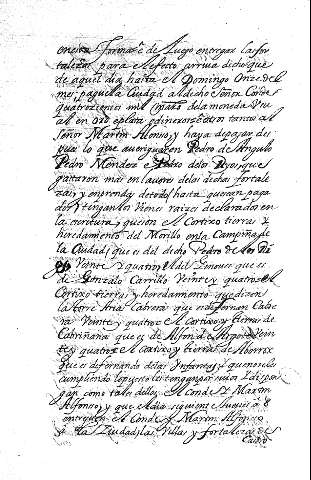 forma e de luego entregar las for
talezas para el efecto arriva dicho que
de aquel dia hasta el Domingo Onze del
mes pague la Ciudad al dicho Señor Conde
quatrozientos mil de la moneda usu
al en oro e plata, e dineros e otro tanto al
Señor Martin Alonso, y haya de pagar des
pues lo que averiguaren Pedro de Angulo
Pedro Mendez e de los Rios, que
gastaron mas en lavores de las dichas fortale
zas, y en prendas de todo, hasta que sean paga
dos, tengan los vienes raizes declarados en
la escritura, que son el Cortixo tierras y
heredamiento del Morillo en la Campiña de
la Ciudad, que es del dicho Pedro de los Ri
os Veinte y quatro, el del Ginoves que es
de Gonzalo Carrillo Veinte y quatro, el
Cortixo tierras y heredamiento que dizen
la torre Arias Cabrera que es de Fernan Cabre
ra Veinte y quatro, e el cortixo y tierras de
Cabriñana que es de Alfon de Argote Vein
te y quatro, e el cortixo y tierras de
que es de fernando de las Infantas, y que no les
cumpliendo lo puesto les tengan por suios
gan como tales de ellas el Conde y Martin
Alfonso, y que el dia siguiente Jueves a 8
entreguen el Conde y Martin Alfonso
a la Ziudad, las Villas y fortalezas de